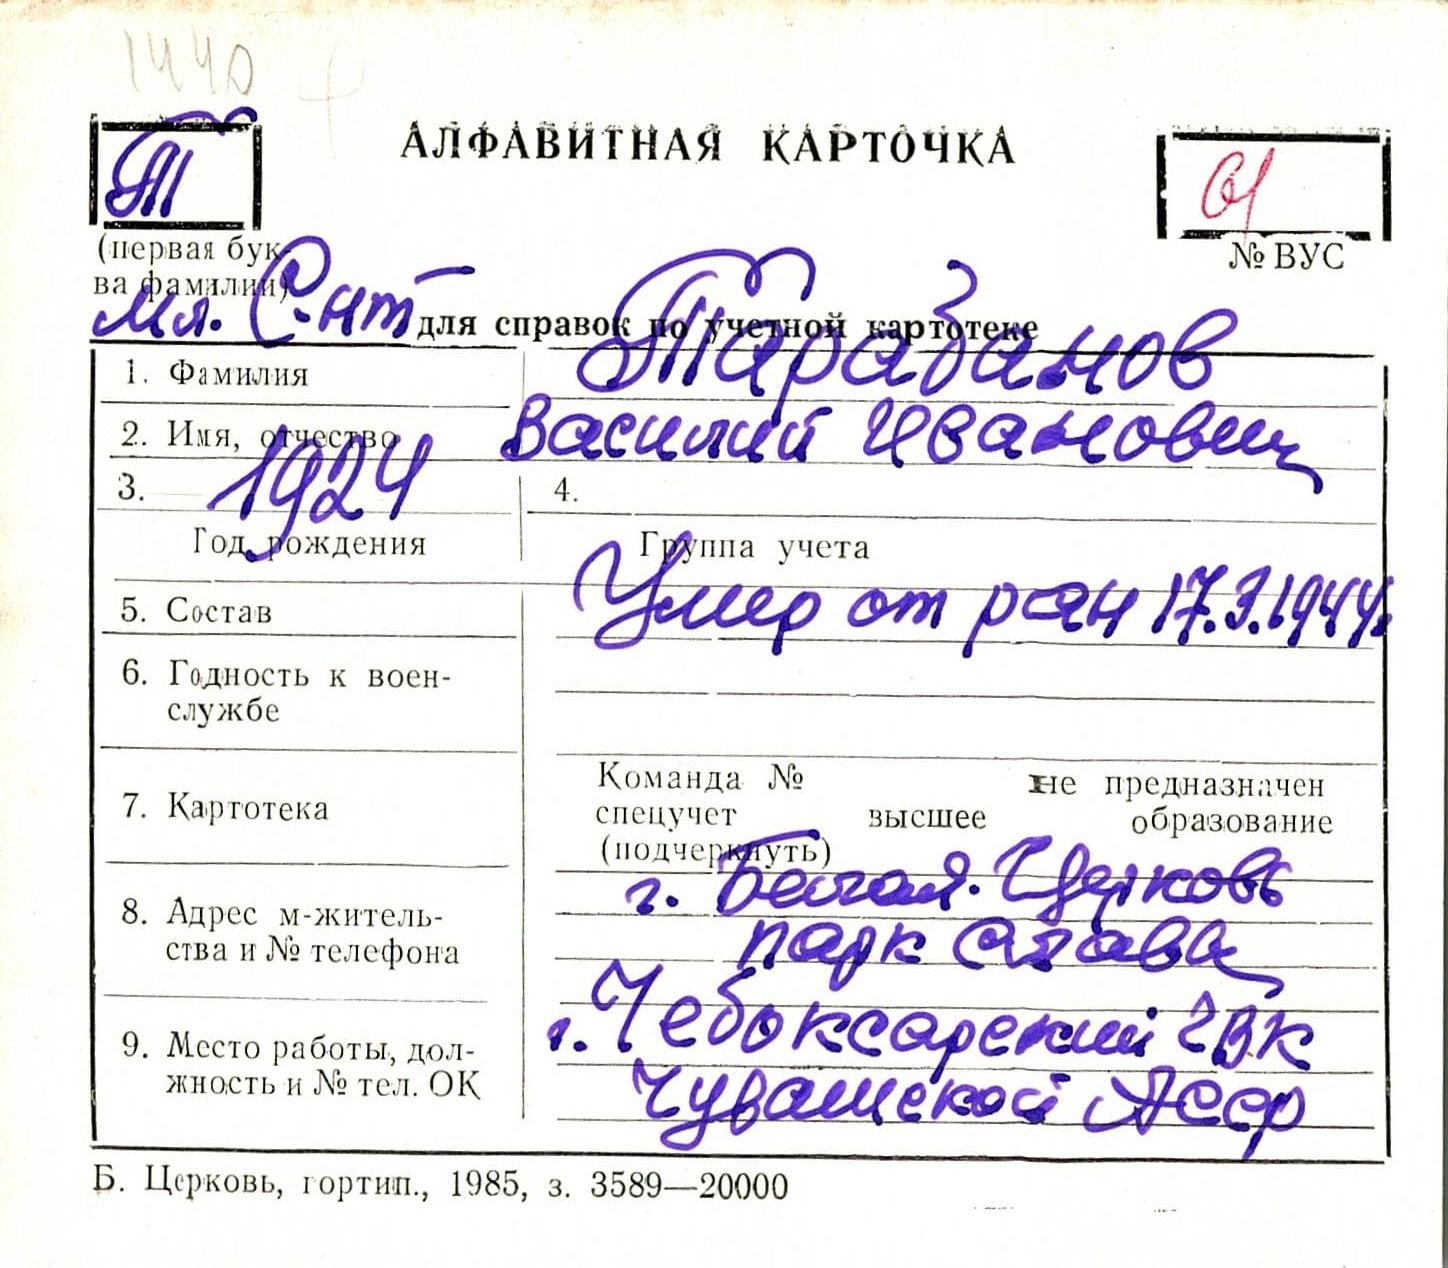 1440
Т
АЛФАВИТНАЯ КАРТОЧКА
(первая бук-
ва фамилии)
№ ВУС
мл. С-нт
для справок по учетной картотеке
1. Фамилия
Тарабанов
2. Имя, отчество
Василий Иванович
3. 1924
4.
Год рождения
Группа учета
5. Состав
Умер от ран 17.3.1944г.
6. Годность к воен-
службе
7. Картотека
Команда № не предназначен
спецучет высшее образование
(подчеркнуть)
8. Адрес м-житель-
ства и № телефона
г. Белая. Церковь
парк Слава
9. Место работы, дол-
жность и № тел. ОК
г. Чебоксарский ГВК
Чувашской АССР
Б. Церковь, гортип., 1985, з. 3589—20000